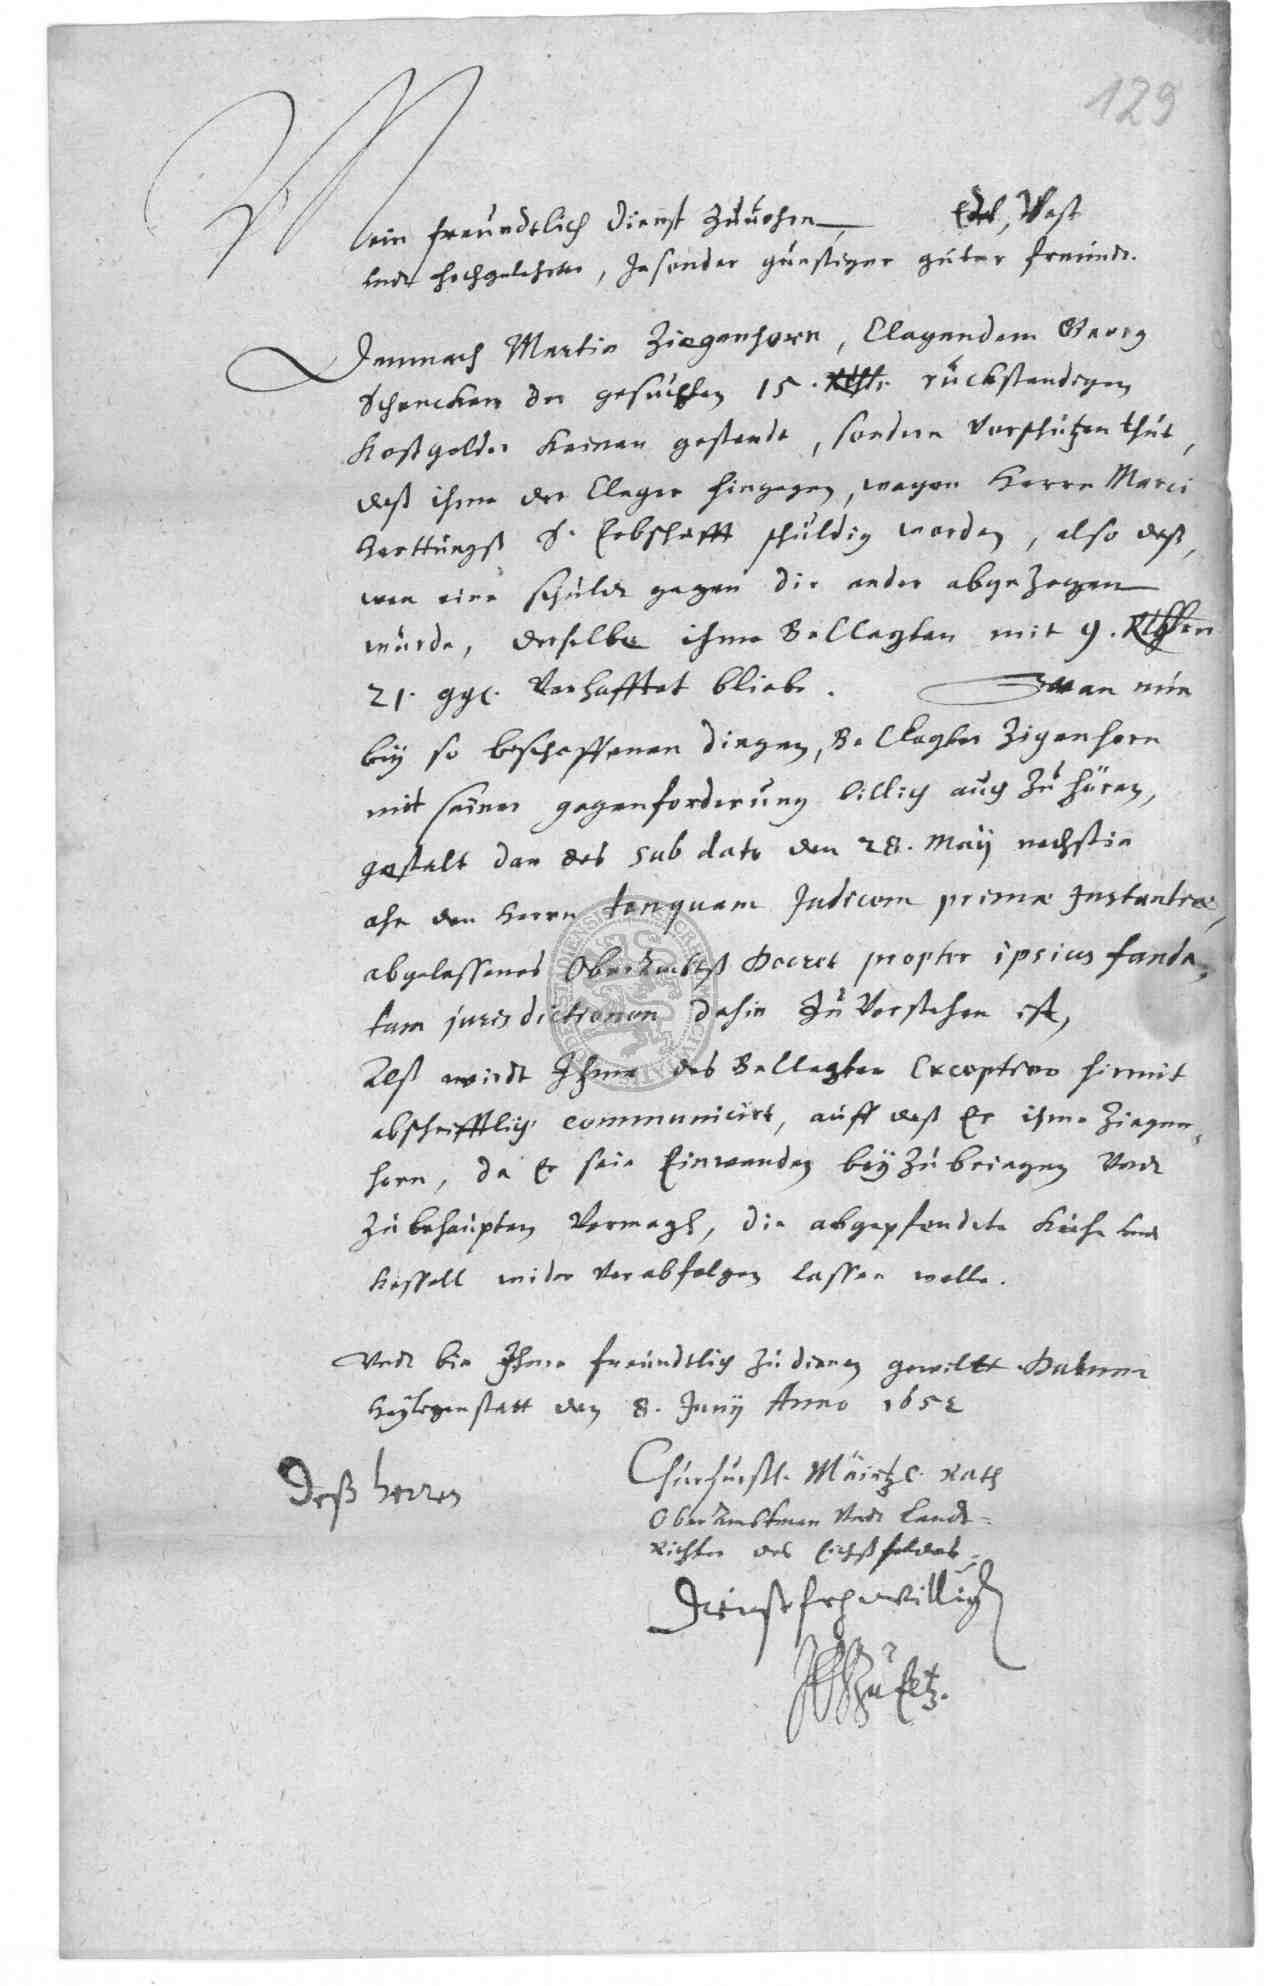 129
Mein freundtlich Dienst Zuuohrn, Edel, Vest
undt hochgelehrter, Jnsonder günstiger guter freundt.
Demnach Martin Ziegenhorn, Clagendem Georg
Schencken der gesuchten 15. Rthlr. rückstendigen
Kostgelder keinen gestendt, sondern Vorschützen thut,
deß ihme der Clager hingegen, wegen Herrn Marci
Herttungß S. Erbschafft schuldig worden, also deß,
wen eine schuldt gegen die ander abgezogen
würde, derselbe ihme Bellagten mit 9. Rthlrn
21. ggl. Verhafftet bliebe. Wan nun
bey so beschaffenen dingen, Beclagter Zigenhorn
mit seiner gegenforderung billich auch zu hören,
gestalt dan das sub dato den 28. Maÿ nechsthin
ahn den Herrn tanquam Judicem primæ Instantiæ,
abgelassenes OberAmbtß Decret propter ipsius funda,
tam jurisdictionem dahin zu Verstehen ist,
Alß wirdt Jhme des Bellagten Exceptiones hirmit
abschrifftlich communicirt, auff deß Er ihme Ziegen,
horn, da Er sein Einwenden beÿzubringen Vndt
zu behaupten Vermagh, die abgepfendete Kuhe undt
Kessell wider Verabfolgen lassen welle.
Vndt bin Jhme freundtlich zu dienen gewillt Datum
Heyligenstatt den 8. Junÿ Anno 1652
Deß Herren
Churfürstl. Mäintz. Rath
OberAmbtman Vndt Landt-
Richter des Eichßfeldes
Dienstfreywilliger